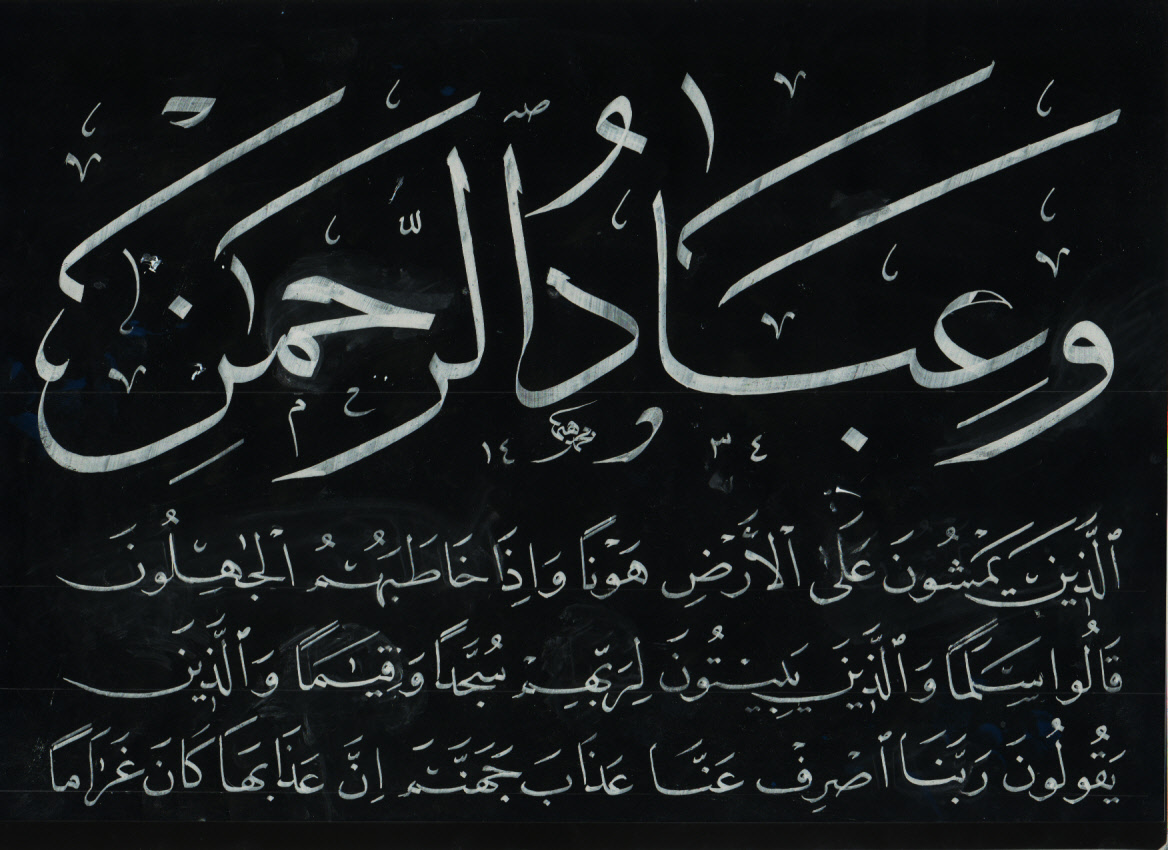 وَعِبَادُ الرَّحْمٰنِ
١٤ ٣٤
الَّذِينَ يَمْشُونَ عَلَى الْأَرْضِ هَوْنًا وَإِذَا خَاطَبَهُمُ الْجٰهِلُونَ
قَالُوا سَلٰمًا وَالَّذِينَ يَبِيتُونَ لِرَبِّهِمْ سُجَّدًا وَقِيٰمًا وَالَّذِينَ
يَقُولُونَ رَبَّنَا اصْرِفْ عَنَّا عَذَابَ جَهَنَّمَ إِنَّ عَذَابَهَا كَانَ غَرَامًا